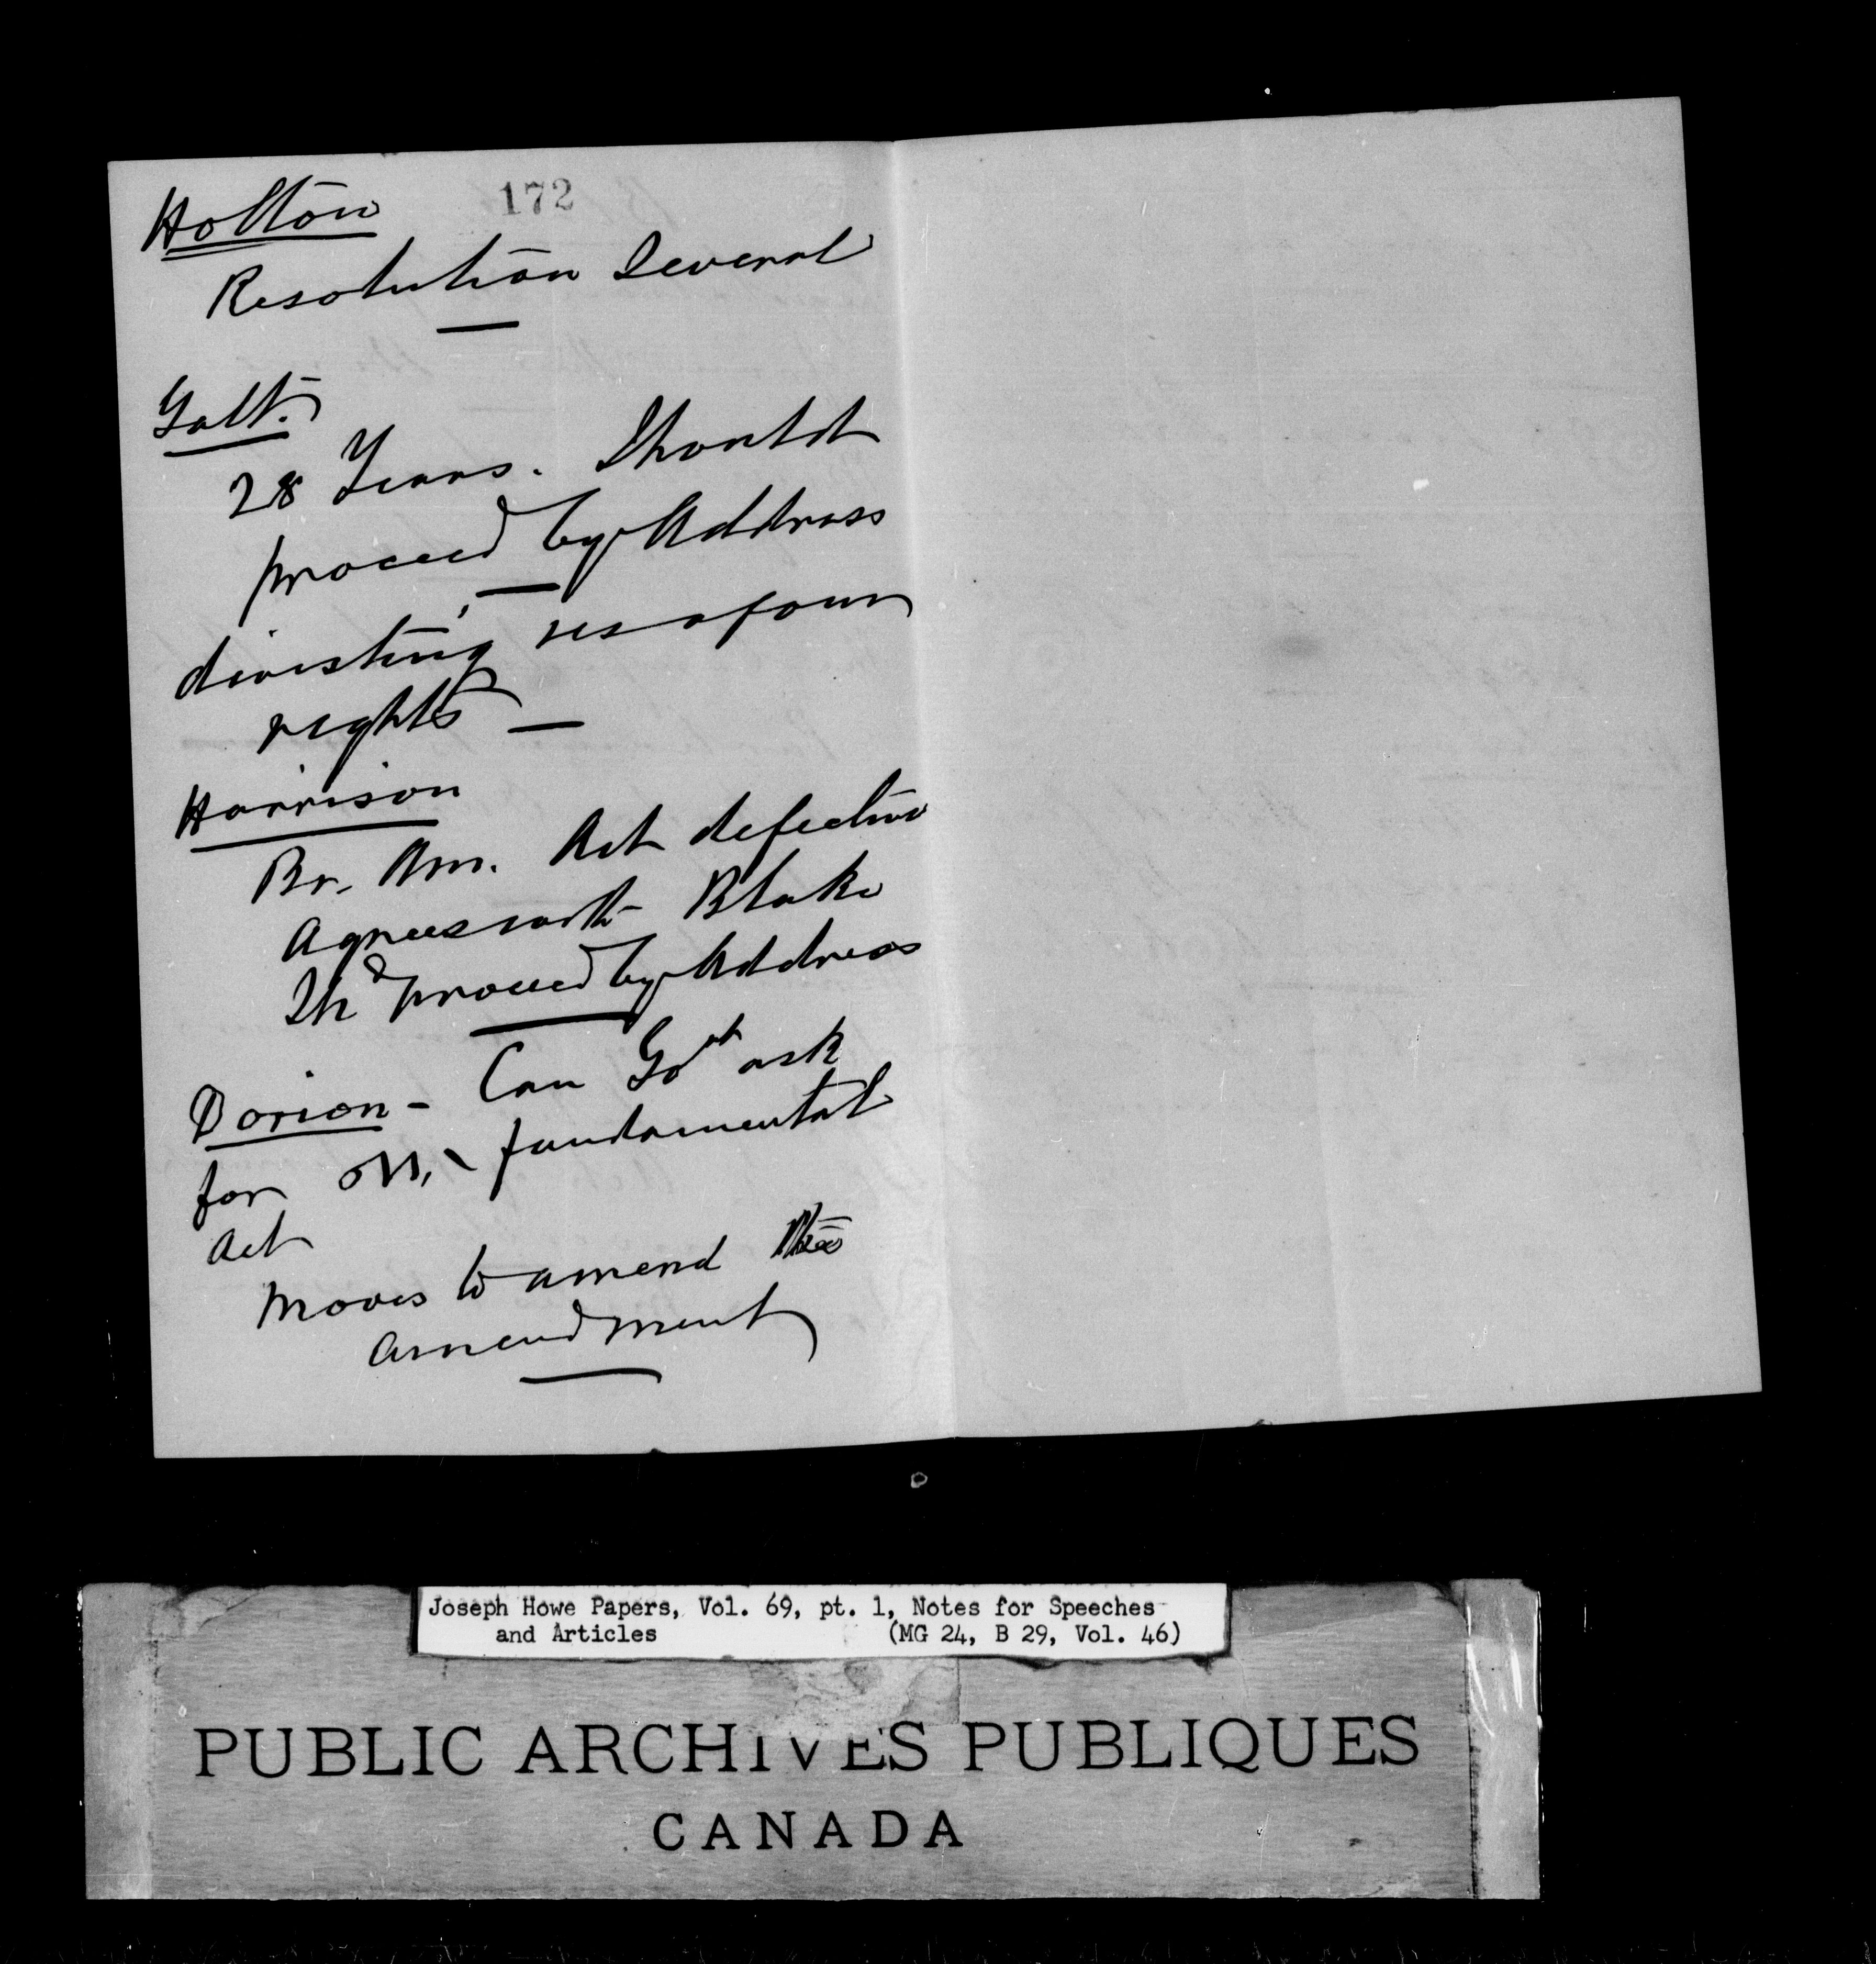 172
Holton
Resolution Several
Galt.
28 Years. Should
proceed by Address
divesting us of our
rights —
Harrison
Br. Am. Act defective
Agrees with Blake
Shd proceed by Address
Dorion - Can Govt ask
for fundamental
Act
Moves to amend the
amendment
Joseph Howe Papers, Vol. 69, pt. 1, Notes for Speeches
and Articles (MG 24, B 29, Vol. 46)
PUBLIC ARCHIVES PUBLIQUES
CANADA